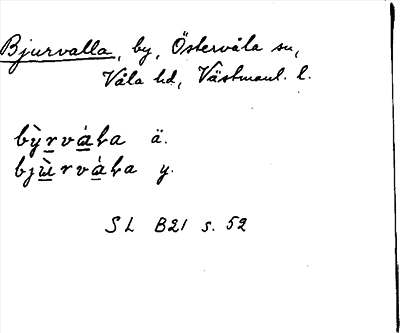 Bjurvalla, by, Östervåla sn,
Våla hd, Västmanl. l.
bỳrváła ä.
bjùrváła y.
SL B21 s. 52